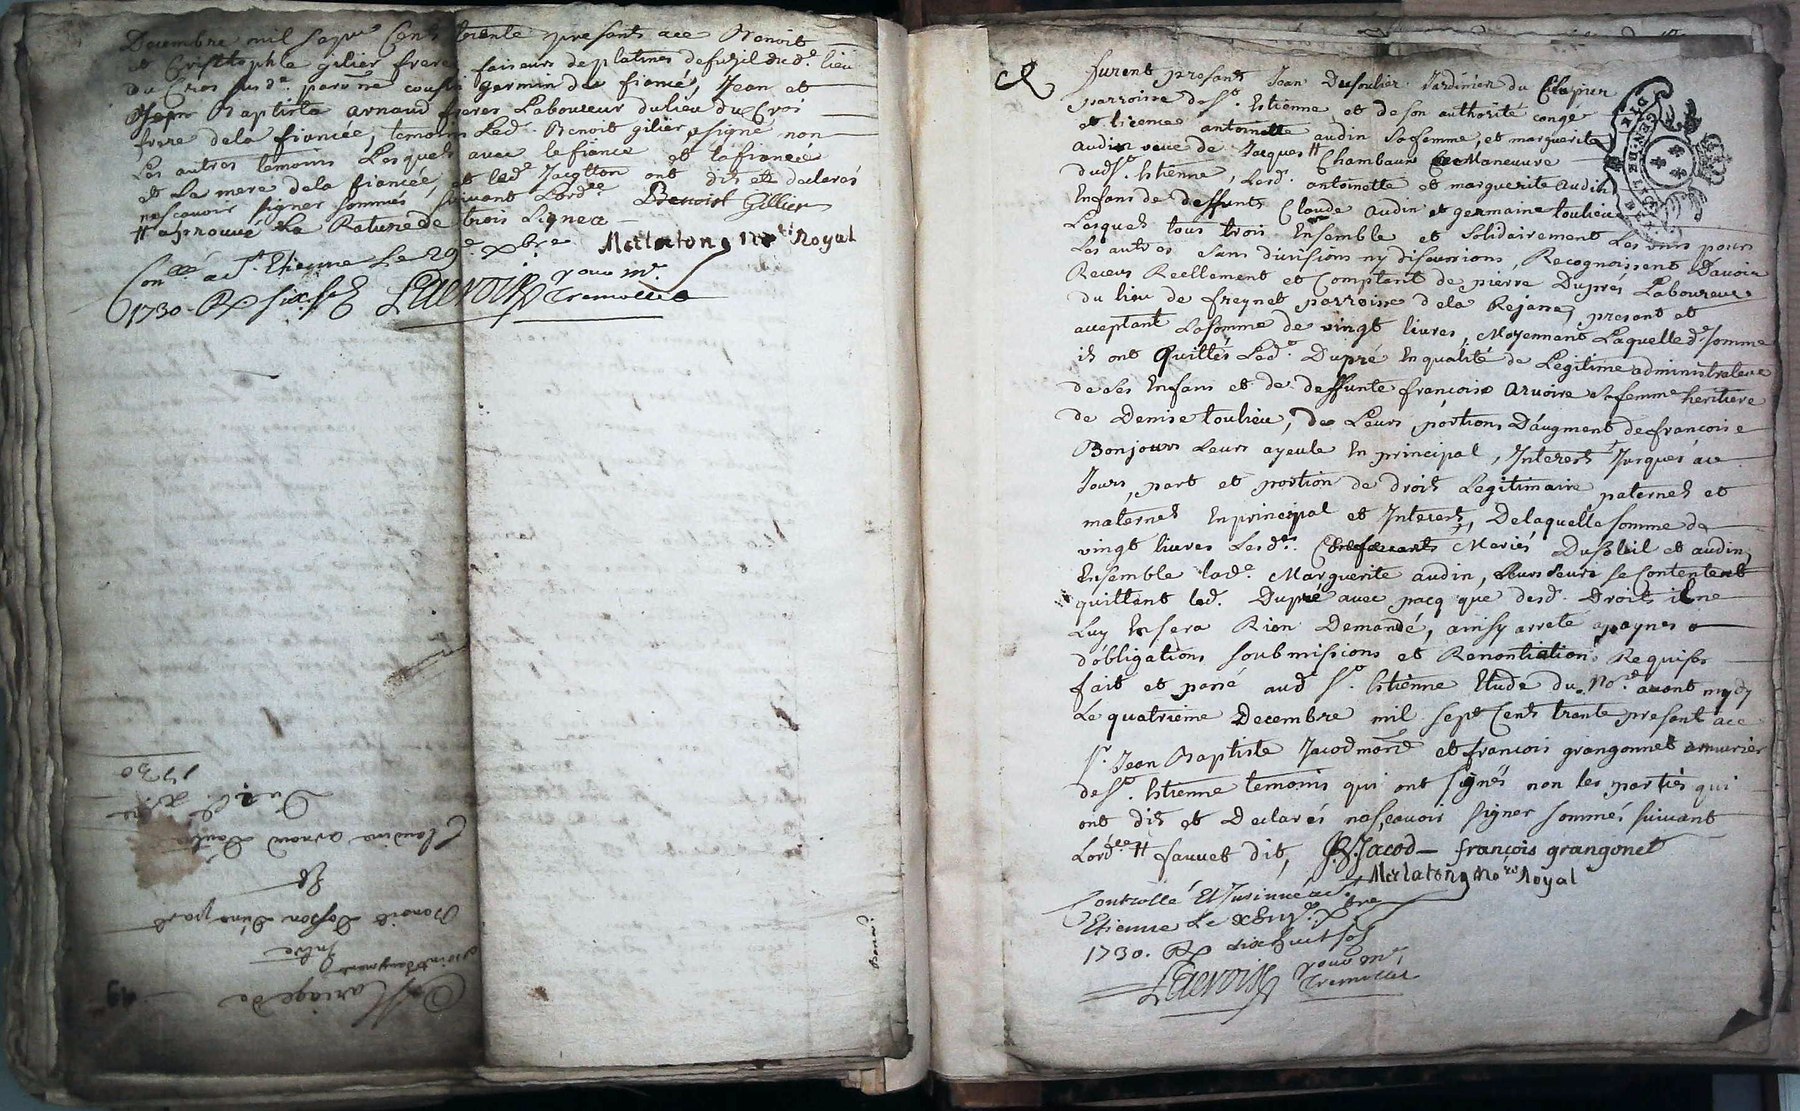 Decembre mil sept Cents trente presents ace Benoit
et Cristophle gilier freres faiseurs de platines de fusil dud. lieu
du Cros susd. cousin germin du fiancé, Jean et
Jean Baptiste arnaud freres Laboureur du lieu du Croi
frere dela fiancée, temoins Led. Benoit gilier, signé non
Les autres temoins Lesquels avec le fiancé et la fiancée
et La mere dela fiancée, et led. Jacotton ont dit et declarés
nescavoir signer sommés suivant Lord.ce Benoist Gillier
# aprouvé La Rature de trois Lignes
Merlatong no.re Royal
Con.llé a S.t Etienne Le 29.e xbre
1730. Rx six
Lacroix
Mariage de
Entre
Benoit d'une part
Et
Claudine arnaud Dautre
Du xbre
1730
49
Et furent presents Jean Dusoulier Jardinier du Clapier
parroisse de S.t Estienne et de son authorité conge
et licence antoinette audin sa femme, et marguerite
audin veuve de Jacques # Chambaud Maneuvre
dud S.t Estienne, Lesd. antoinette et marguerite audin
Enfans de deffunts Claude audin et germaine toulieu
Lesquels tous trois Ensemble et solidairement Les uns pours
Les autres sans divisions ny discurions, Recognoissent Davoir
Receus Reellement et Comptant de pierre Dupré Laboureur
du lieu de freynet parroisse dela Rejasse, present et
acceptant La somme de vingt livres, Moyennant Laquelle d.e somme
ils ont Quittés Led. Dupré En qualité de Legitime administrateur
de ses Enfans et de deffunte francoise sa femme heritiere
de Denise toulieu, de Leurs portions Daugment de francoise
Bonjours Leurs ayeule En principal, Interests Jusques a ce
Jours, part et portion de droits Legitimaire paternels et
maternels En principal et Interests, De laquelle somme de
vingt livres Lesd.s Mariés Dusoleil et audin,
Ensemble lad.e Marguerite audin, Leurs seurs se Contentent
quittent led. Dupré avec pacq que desd. Droits il ne
Luy En sera Rien Demandé, ainsy arreté apaynes
d'obligations soubmissions et Renontiations Requises
fait et passé aud S.t Estienne Etude du No.re avant mydy
Le quatrieme Decembre mil sept Cents trente present ace
S.r Jean Baptiste Jacodmond et francois grangonnet armurier
de S.t Estienne temoins qui ont signés non les parties qui
ont dit et Declarés nascavoir signer sommés suivant
Lord.ce # sauvet dit, JB. Jacod francois grangonet
Merlatong no.re Royal
Controllé Et Insinué a S.t
Etienne Le xbre
1730. Rx dix huit sols
Lacroix